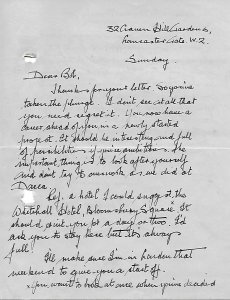 32 Craven Hill Gardens,
Lancaster Gate. W.2.
Sunday
Dear Bob,
Thanks for your letter. So you've
taken the plunge. I don't see at all that
you need regret it. You now have a
career ahead of you in a newly started
project. It should be interesting and full
of possibilities if you're ambitious. The
important thing is to look after yourself
and don't try to overwork as we did at
Dacca
Ref. a hotel I could suggest the
Whitehall Hotel, Bloomsbury Square. It
should suit you for a day or two. I'd
ask you to stay here but it's always
full.
make sure I'm in London that
weekend to give you a start off.
You want to book at once when you've decided